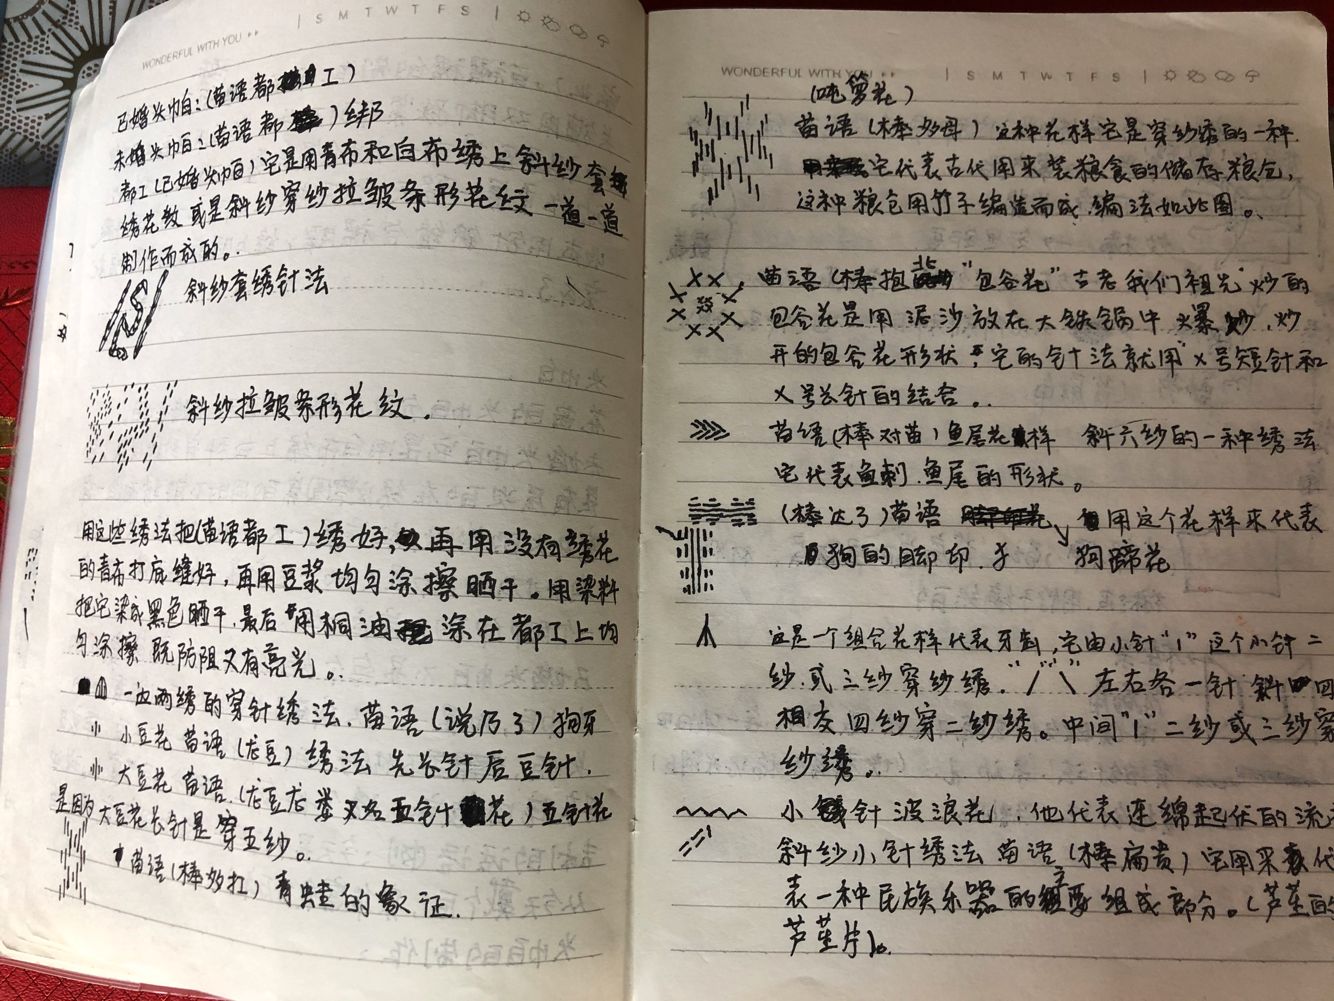 WONDERFUL WITH YOU
S M T W T F S
已婚头巾自:(苗语都工)
未婚头巾自:(苗语都)绑
都工(已婚头巾自)它是用青布和白布绣上斜纱套
绣花纹或是斜纱穿纱拉皱条形花纹一道一道
制作而成的。
斜纱套绣针法
斜纱拉皱条形花纹.
用这些绣法把(苗语都工)绣好,再用没有绣花
的青布打底缝好,再用豆浆均匀涂擦晒干。用染料
把它染成黑色晒干.最后用桐油涂在都工上均
匀涂擦既防阻又有亮光。
一边两绣的穿针绣法.苗语(说乃了)狗牙
小豆花 苗语(龙豆)绣法 先长针后豆针.
大豆花 苗语.(龙豆龙 又名五针花)五针花
是因为大豆花长针是穿五纱。
苗语(棒妙扛)青蛙的象征.
WONDERFUL WITH YOU
S M T W T F S
(吨箩花)
苗语(棒妙母)这种花样它是穿纱绣的一种.
它代表古代用来装粮食的储存粮仓,
这种粮仓用竹子编造而成.编法如此图。
苗语(棒抱北"包谷花"古老我们祖先炒的
包谷花是用泥沙放在大铁锅中爆炒.炒
开的包谷花形状,它的针法就用"X号短针和
X号长针的结合。
苗语(棒对苗)鱼尾花样 斜六纱的一种绣法
它代表鱼刺.鱼尾的形状。
(棒达了)苗语 用这个花样来代表
狗的脚印 子 狗蹄花
这是一个组合花样代表牙齿,它由小针"1"这个小针二
纱或三纱穿纱绣."/""\"左右各一针 斜四
相反四纱穿二纱绣。中间"1"二纱或三纱穿
纱绣。
小针波浪花,他代表连绵起伏的流
斜纱小针绣法 苗语(棒扁贵)它用来代
表一种民族乐器的主要组成部分。(芦笙的
芦笙片)。